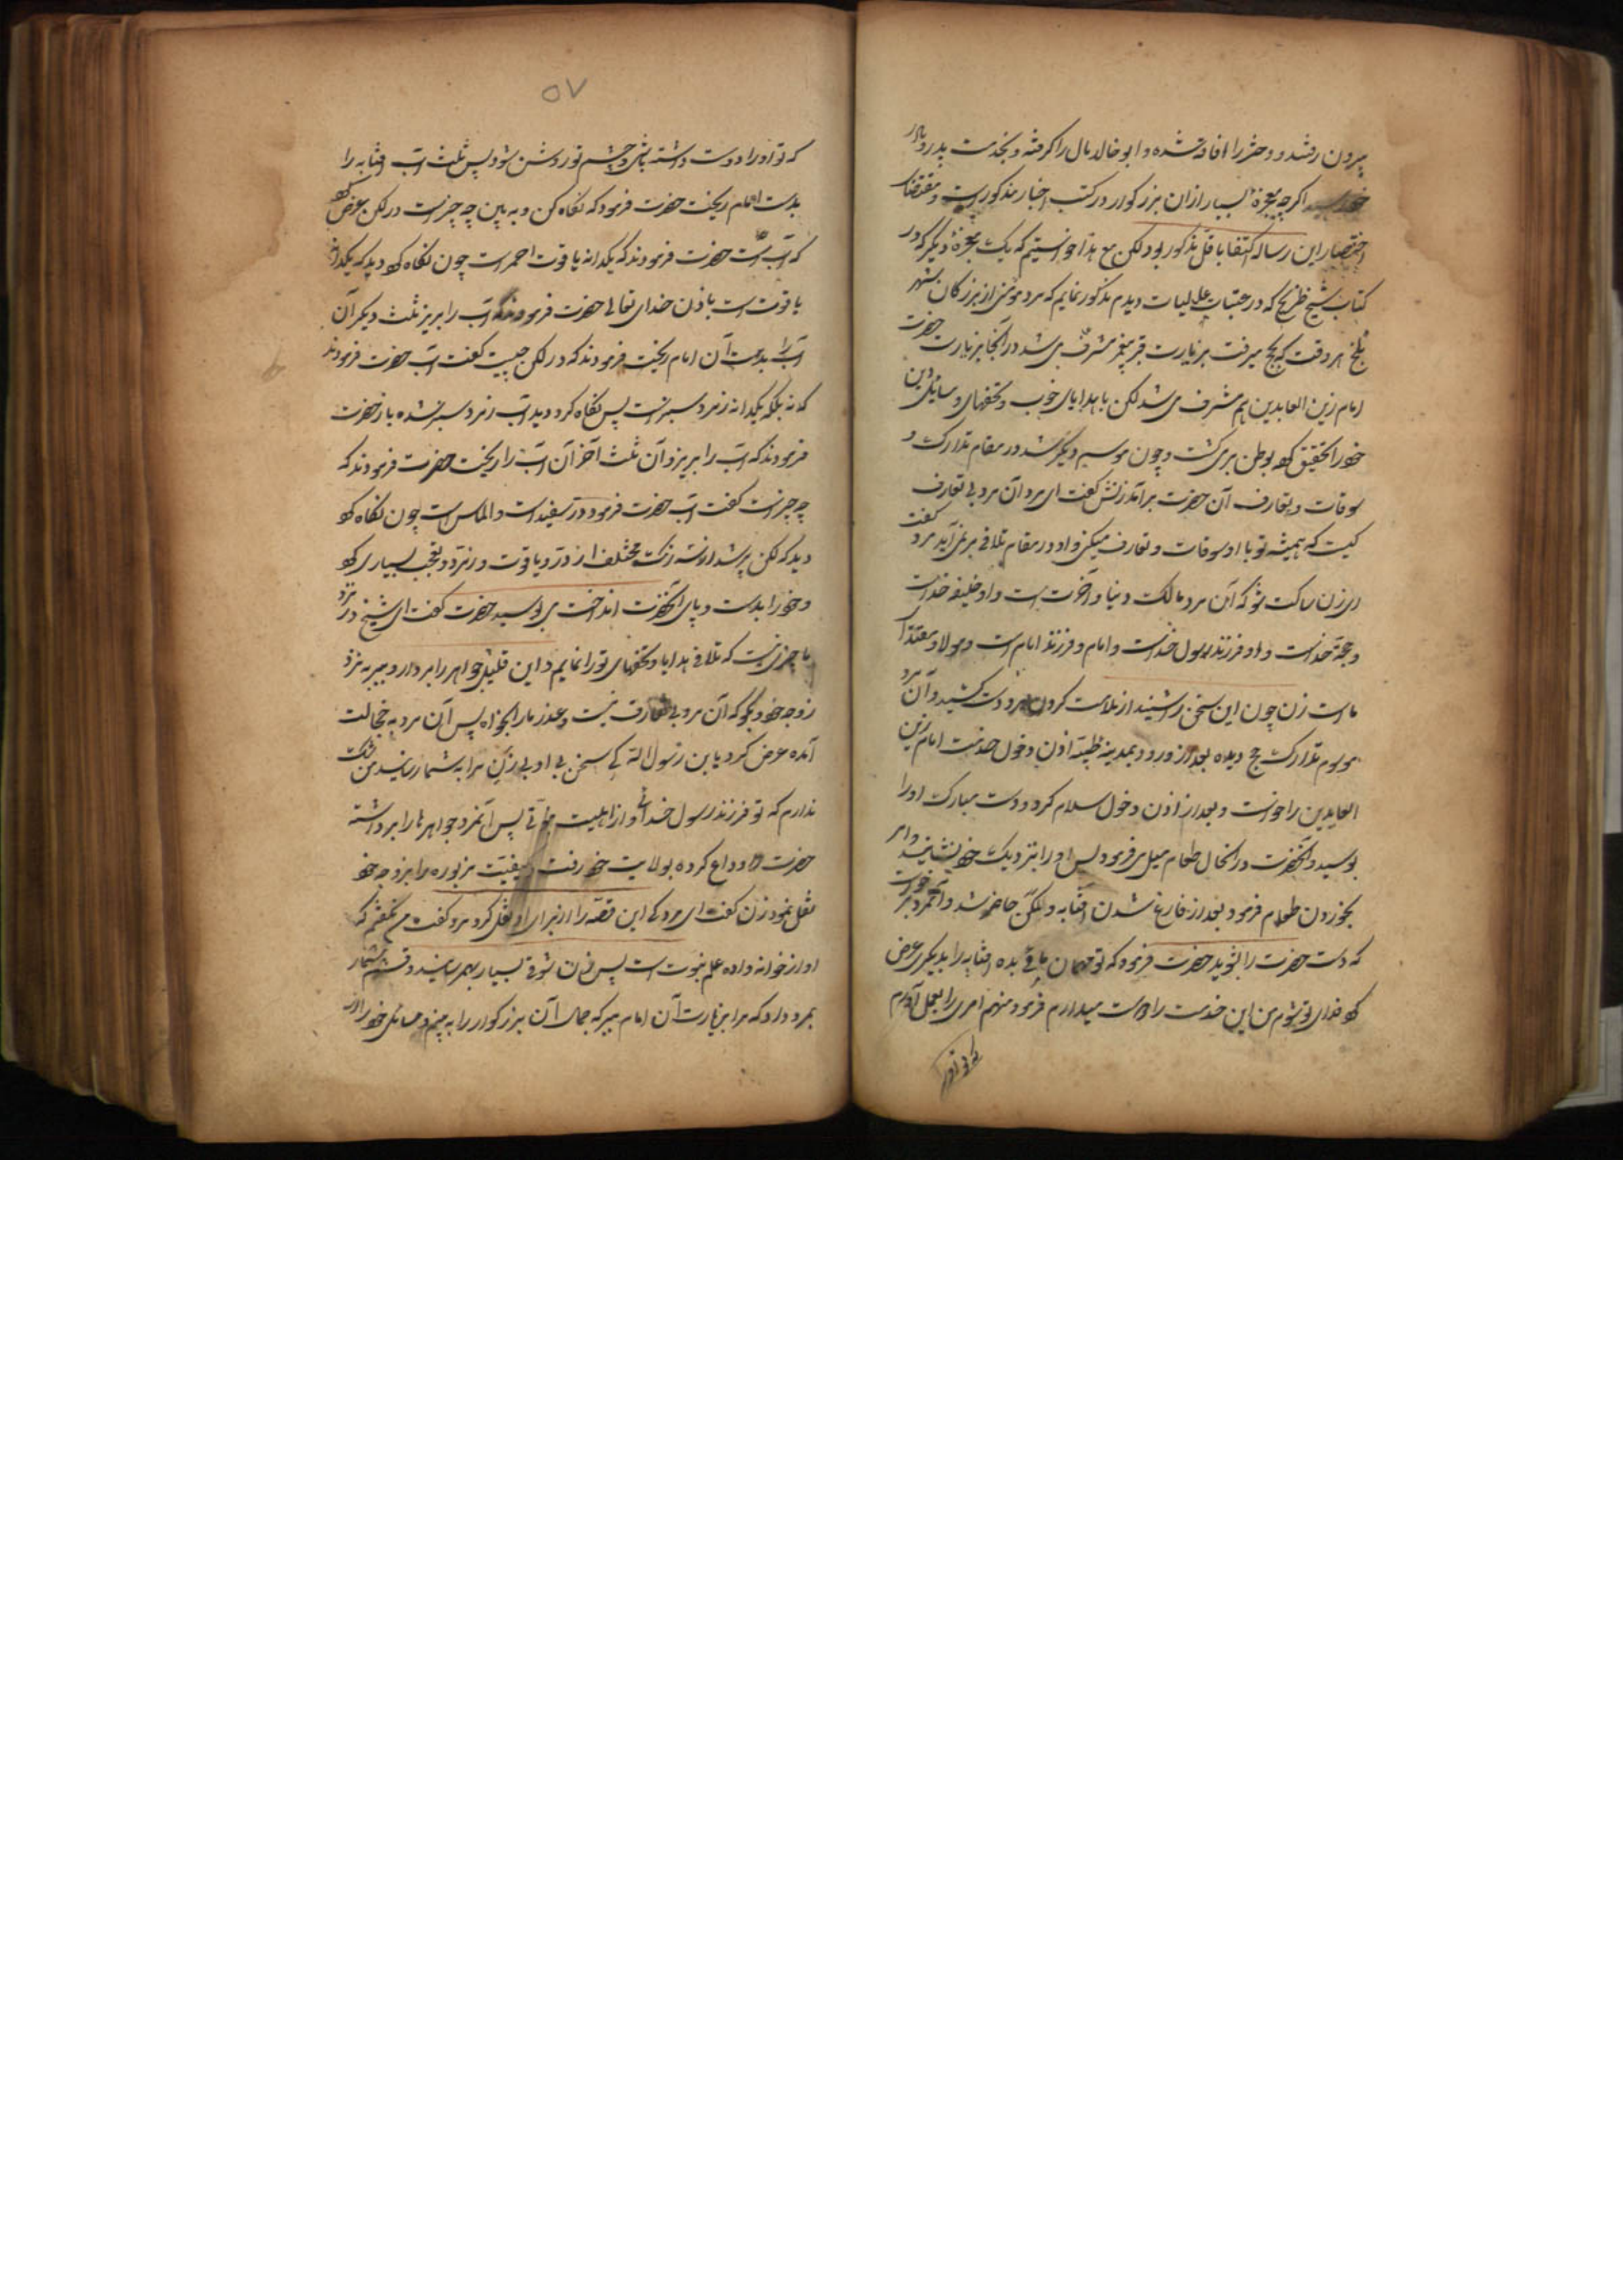 بیرون رفتند و دختر را افاقه شده و ابو خالد مال را گرفته و بخدمت پدر و مادر
خود رسید اگرچه معجزه بسیار از ان بزرگوار در کتب اخبار مذکور است و مقتضای
اختصار این رساله اکتفا باقل مذکور بود لکن مع هذا خواستیم که یک معجزه دیگر که در
کتاب شیخ طریح که در عتبات عالیات دیدم مذکور نمایم که مرد مؤمنی از بزرکان شهر
بلخ هر وقت که بحج میرفت بزیارت قبر پیغمبر مشرف می شد در آنجا بزیارت حضرت
امام زین العابدین هم مشرف می شد لکن با هدایای خوب و تحفهای و مسایل دین
خود را تحقیق کرده بوطن بر می گشت و چون موسم دیگر شد در مقام تدارک و
سوقات و تعارف آن حضرت برآمد زنش گفت ای مرد آن مرد بی تعارف
کیست که همیشه تو با او سوقات و تعارف میکنی و او در مقام تلافی بر نمی آید مرد گفت
ای زن ساکت شو که آن مرد مالک دنیا و آخرت است و او خلیفه خداست
و حجة خداست و او فرزند رسول خداست و امام و فرزند امام است و مولا و مقتدا
ما است زن چون این سخن را شنید از ملامت کردن مرد دست کشید و آن مرد
موسم تدارک حج دیده بعد از ورود بمدینه طیبه اذن دخول خدمت امام زین
العابدین را خواست و بعد از اذن دخول سلام کرد و دست مبارک او را
بوسید و آنحضرت در انحال طعام میل می فرمود پس او را نزدیک خود نشانید و امر
بخوردن طعام فرمود بعد از فارغ شدن افتابه و لگن حاضر شد و آنمرد برخواست
که دست حضرت را بشوید حضرت فرمود که تو مهمان مائی بده افتابه را بدیگری عرض
کرد فدای تو شوم من این خدمت را دوست میدارم فرمود منهم امری را بعمل آورم
که تو آنرا
۵۷
که تو آورا دوست داشته باشی و چشم تو روشن شود پس ثلث آب افتابه را
بدست امام ریخت حضرت فرمود که نگاه کن و به بین چه چیز است در لکن عرض کرد
که آب است حضرت فرمودند که یکدانه یاقوت احمر است چون نگاه کرد دید که یکدانه
یاقوت است باذن خدای تعالی حضرت فرمودند که آب را بریز ثلث دیگر آن
آب را بدست آن امام ریخت فرمودند که در لکن چیست گفت آب حضرت فرمودند
که نه بلکه یکدانه زمرد سبز است پس نگاه کرد دید آب زمرد سبز شده باز حضرت
فرمودند که آب را بریز و آن ثلث آخر آن آب را ریخت حضرت فرمودند که
چه چیز است گفت آب حضرت فرمود در سفید است و الماس است چون نگاه کرد
دید که لکن پر شد از سه رنگ مختلف از در و یاقوت و زمرد و تعجب بسیاری کرد
و خود را بدست و پای آنحضرت انداخت می بوسید حضرت گفت ای شیخ در نزد
ما چیزی نیست که تلافی هدایا و تحفهای تو را نمایم و این قلیل جواهر را بردار و ببر به نزد
زوجه خود و بگو که آن مرد بی تعارف نیست و عذر ما را بخواه پس آن مرد به خجالت
آمده عرض کرد یا بن رسول الله کی سخن بی ادبی زن مرا به شما رسانید من شک
ندارم که تو فرزند رسول خدائی و از اهلبیت پس آنمرد جواهرها را برداشته
حضرت را وداع کرده بولایت خود رفت و کیفیت مزبوره را بزوجه خود
نقل نمود زن گفت ای مرد کی این قصه را از برای او نقل کرد مرد گفت من نگفتم که
او از خوانه واده علم نبوت است پس زن شوق بسیار بهمرسانید و قسم بشمار
بمرد داد که مرا بزیارت آن امام ببر که جمال آن بزرگوار را به بینم و مسائل خود را از